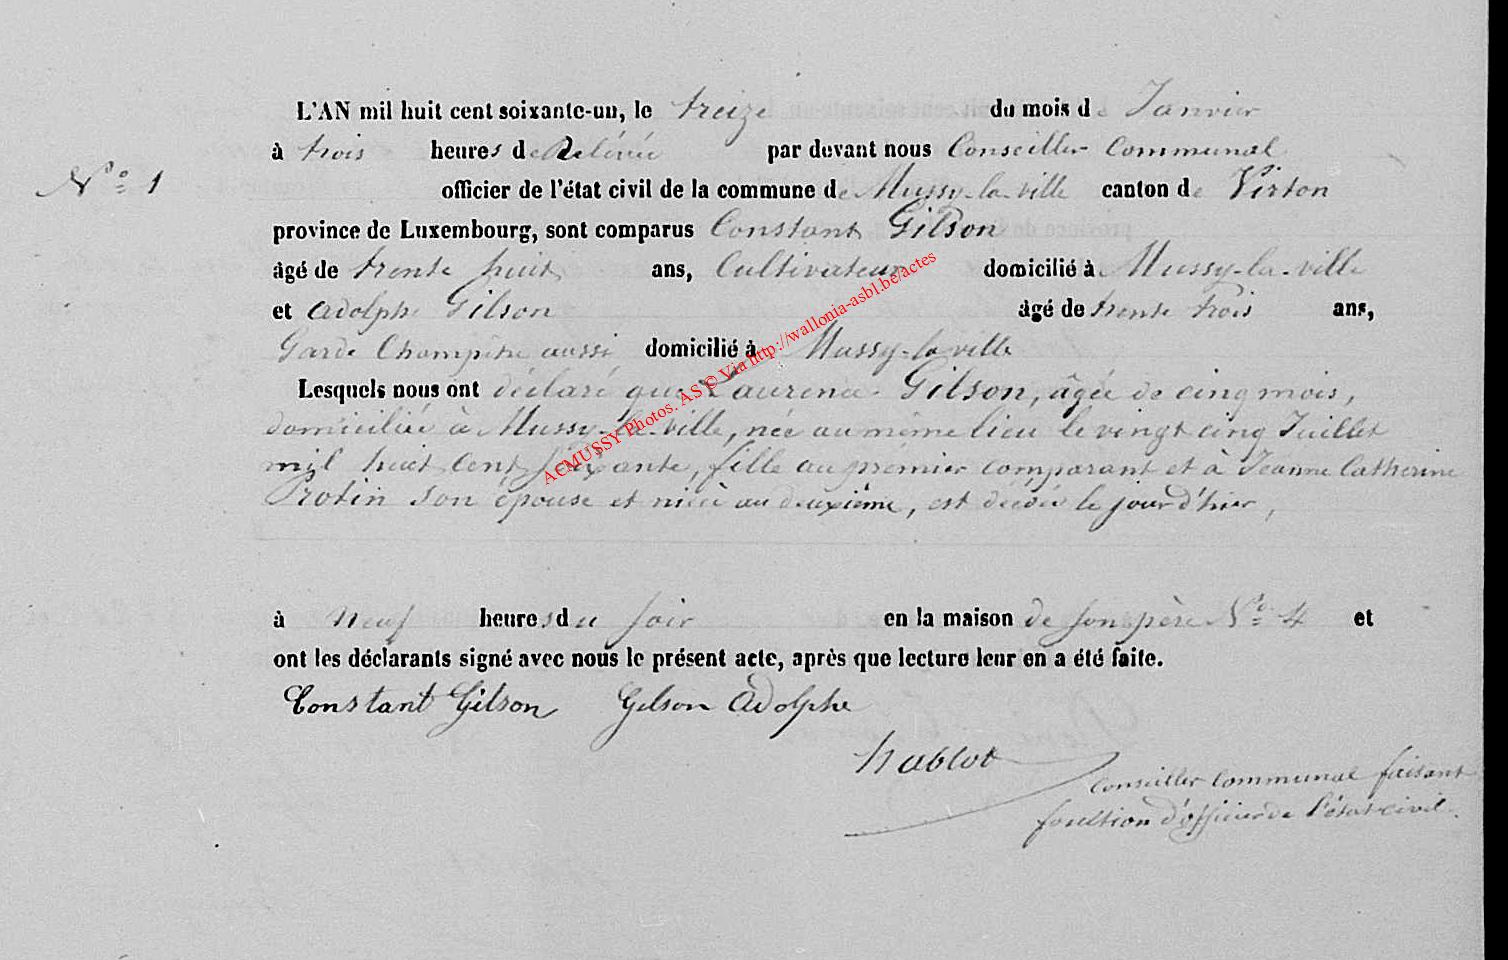 L'AN mil huit cent soixante-un, le treize du mois de Janvier
à trois heures de Relévée par devant nous Conseiller Communal
N° 1 officier de l'état civil de la commune de Mussy-la-ville canton de Virton
province de Luxembourg, sont comparus Constant Gilson
âgé de trente huit ans, Cultivateur domicilié à Mussy-la-ville
et Adolphe Gilson âgé de trente trois ans,
Garde Champêtre aussi domicilié à Mussy-la ville
Lesquels nous ont déclaré que Laurence Gilson, âgée de cinq mois,
domiciliée à Mussy-la-ville, née au même lieu le vingt cinq Juillet
mil huit cent soixante, fille au premier comparant et à Jeanne Catherine
Protin son épouse et nièce au deuxième, est décédée le jour d'hier,
à neuf heures du soir en la maison de son père N° 4 et
ont les déclarants signé avec nous le présent acte, après que lecture leur en a été faite.
Constant Gilson Gilson Adolphe
hablot
Conseiller communal faisant
fonction d'officier de l'état civil.
ACMUSSY Photos. AS © Via http://wallonia-asbl.be/actes